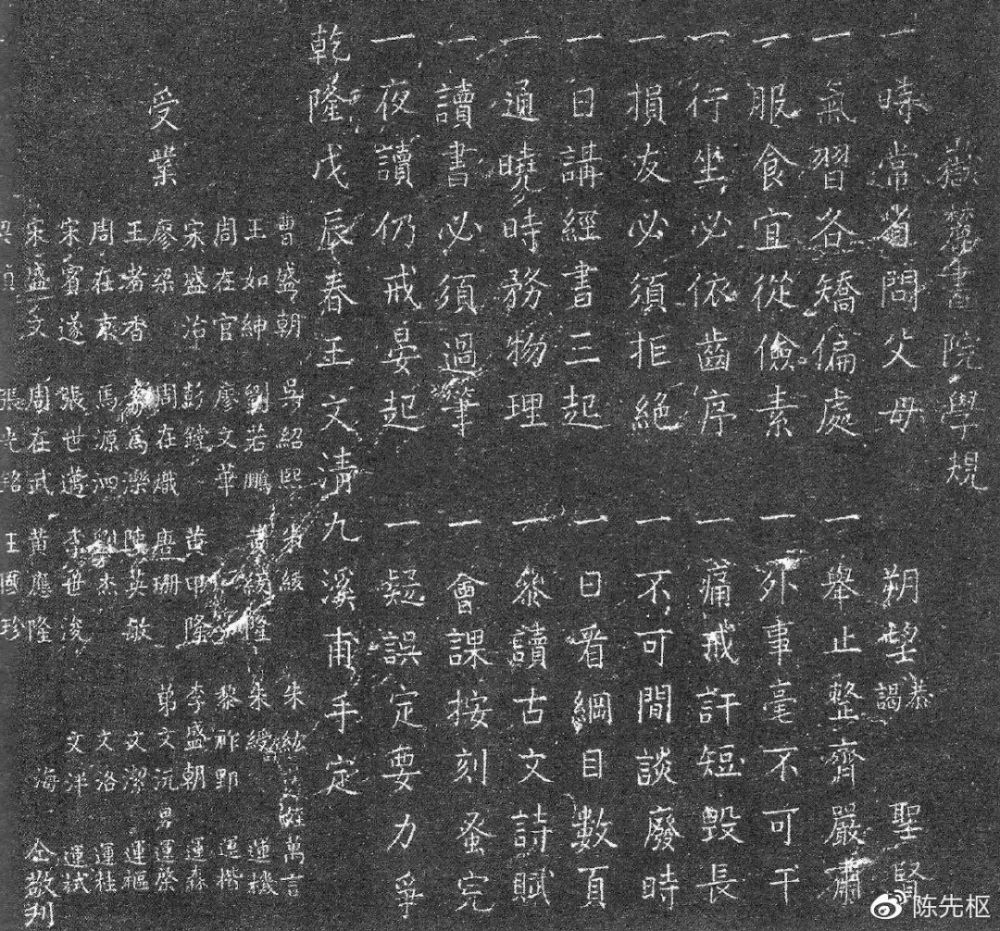 嶽麓書院學規
一時常省問父母 朔望恭謁聖賢
一氣習各矯偏處 一舉止整齊嚴肅
一服食宜從儉素 一外事毫不可干
一行坐必依齒序 一痛戒訐短毀長
一損友必須拒絕 一不可閒談廢時
一日講經書三起 一日看綱目數頁
一通曉時務物理 一叅讀古文詩賦
一讀書必須過筆 一會課按刻蚤完
一夜讀仍戒晏起 一疑誤定要力爭
乾隆戊辰春王文清九溪甫手定
受業
曹盛朝 吳紹熙 朱紘 萬言
王如紳 劉若鵬 朱綬 運機
周在官 廖文華 黎祚郢 運楷
宋盛治 彭鏡 黃甲隆 李盛朝 運森
廖梁 周在熾 唐珊 弟文沅 男運榮
王者香 為濼 陳英敏 文潔 運樞
周在 馬源泗 劉杰 文洛 運桂
宋賓遂 張世邁 李世浚 文洋 運栻
宋盛文 周在武 黃應隆 海 仝敬刋
張光銘 王國珍
陈先枢